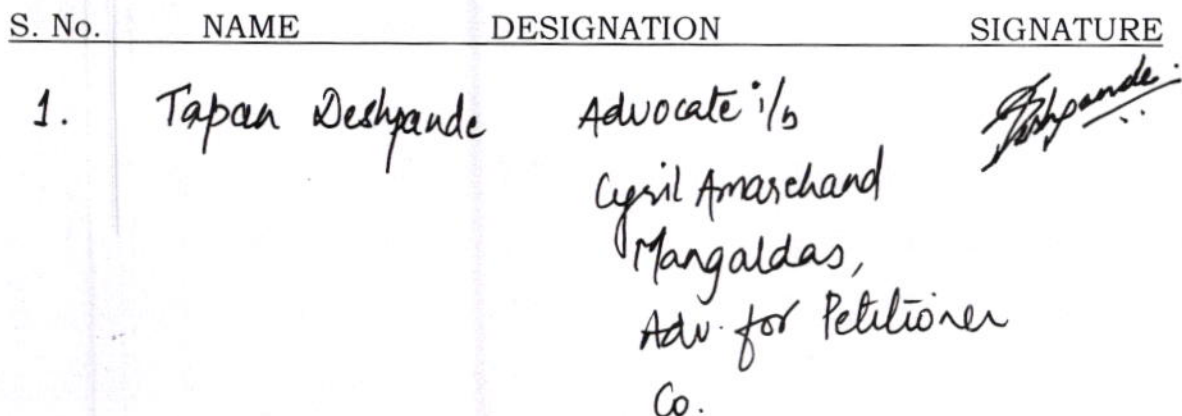 S. No. NAME DESIGNATION SIGNATURE
1. Tapan Deshpande Advocate i/b Deshpande.
Cyril Amarchand
Mangaldas,
Adv. for Petitioner
Co.